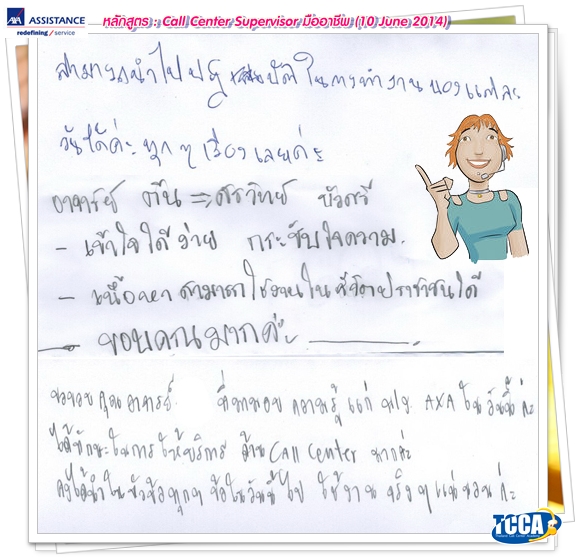 AXA ASSISTANCE
redefining / service
หลักสูตร : Call Center Supervisor มืออาชีพ (10 June 2014)
สามารถนำไปปฏิบัติในการทำงานของแต่ละ
วันได้ค่ะ ทุกๆ เรื่องเลยค่ะ
อาจารย์ ตีน => ศรวิทย์ บัวศรี
- เข้าใจได้ง่าย กระชับใจความ.
- เนื้อหาสามารถใช้งานในชีวิตประจำวันได้
- ขอบคุณมากค่ะ
ขอขอบคุณอาจารย์. ที่มามอบความรู้แก่ AXA ในวันนี้ค่ะ
ได้ทักษะในการให้บริการ ด้าน Call Center มากค่ะ
คงได้นำในหัวข้อทุกๆ ข้อในวันนี้ไป ใช้งานจริงๆ แน่นอนค่ะ
TCCA
Thailand Call Center Academy